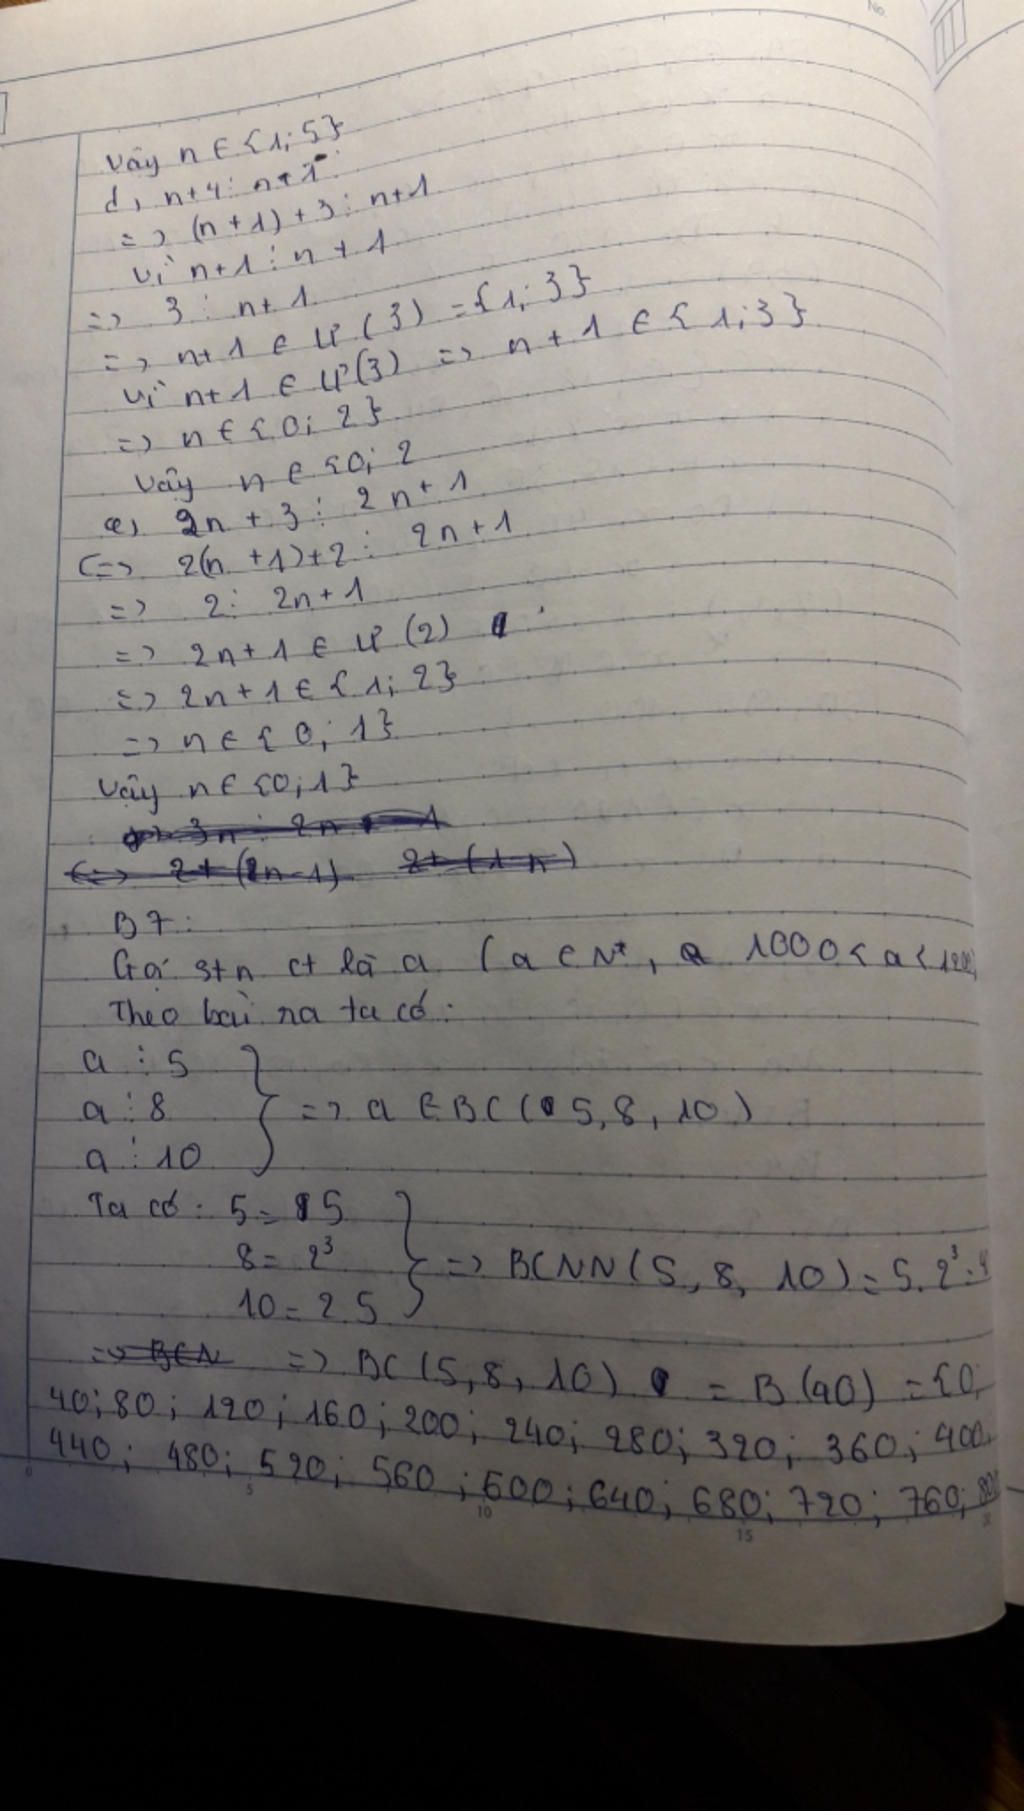 No.
Vây n ∈ {1; 5}
d, n+4 ⋮ n+1
=> (n+1)+3 ⋮ n+1
Vì n+1 ⋮ n+1
=> 3 ⋮ n+1
=> n+1 ∈ Ư(3) = {1; 3}
Vì n+1 ∈ Ư(3) => n+1 ∈ {1;3}
=> n ∈ {0; 2}
Vây n ∈ {0; 2
e, 2n + 3 ⋮ 2n+1
<=> 2(n+1)+2 ⋮ 2n+1
=> 2 ⋮ 2n+1
=> 2n+1 ∈ Ư(2)
=> 2n+1 ∈ {1; 2}
=> n ∈ {0; 1}
Vây n ∈ {0;1}
3n ⋮ 2n - 1
<=> 2+(2n-1) 2+(1-n)
B7:
Gọi stn ct là a (a ∈ N*, 1000 < a <
Theo bài ra ta có:
a ⋮ 5
a ⋮ 8
=> a ∈ BC(5, 8, 10)
a ⋮ 10
Ta có: 5 = 5
8 = 2³
=> BCNN(5, 8, 10) = 5.2³ =
10 = 2.5
=> BCN => BC(5, 8, 10) = B(40) = {0;
40; 80; 120; 160; 200; 240; 280; 320; 360; 400;
440; 480; 520; 560; 600; 640; 680; 720; 760;
5
10
15